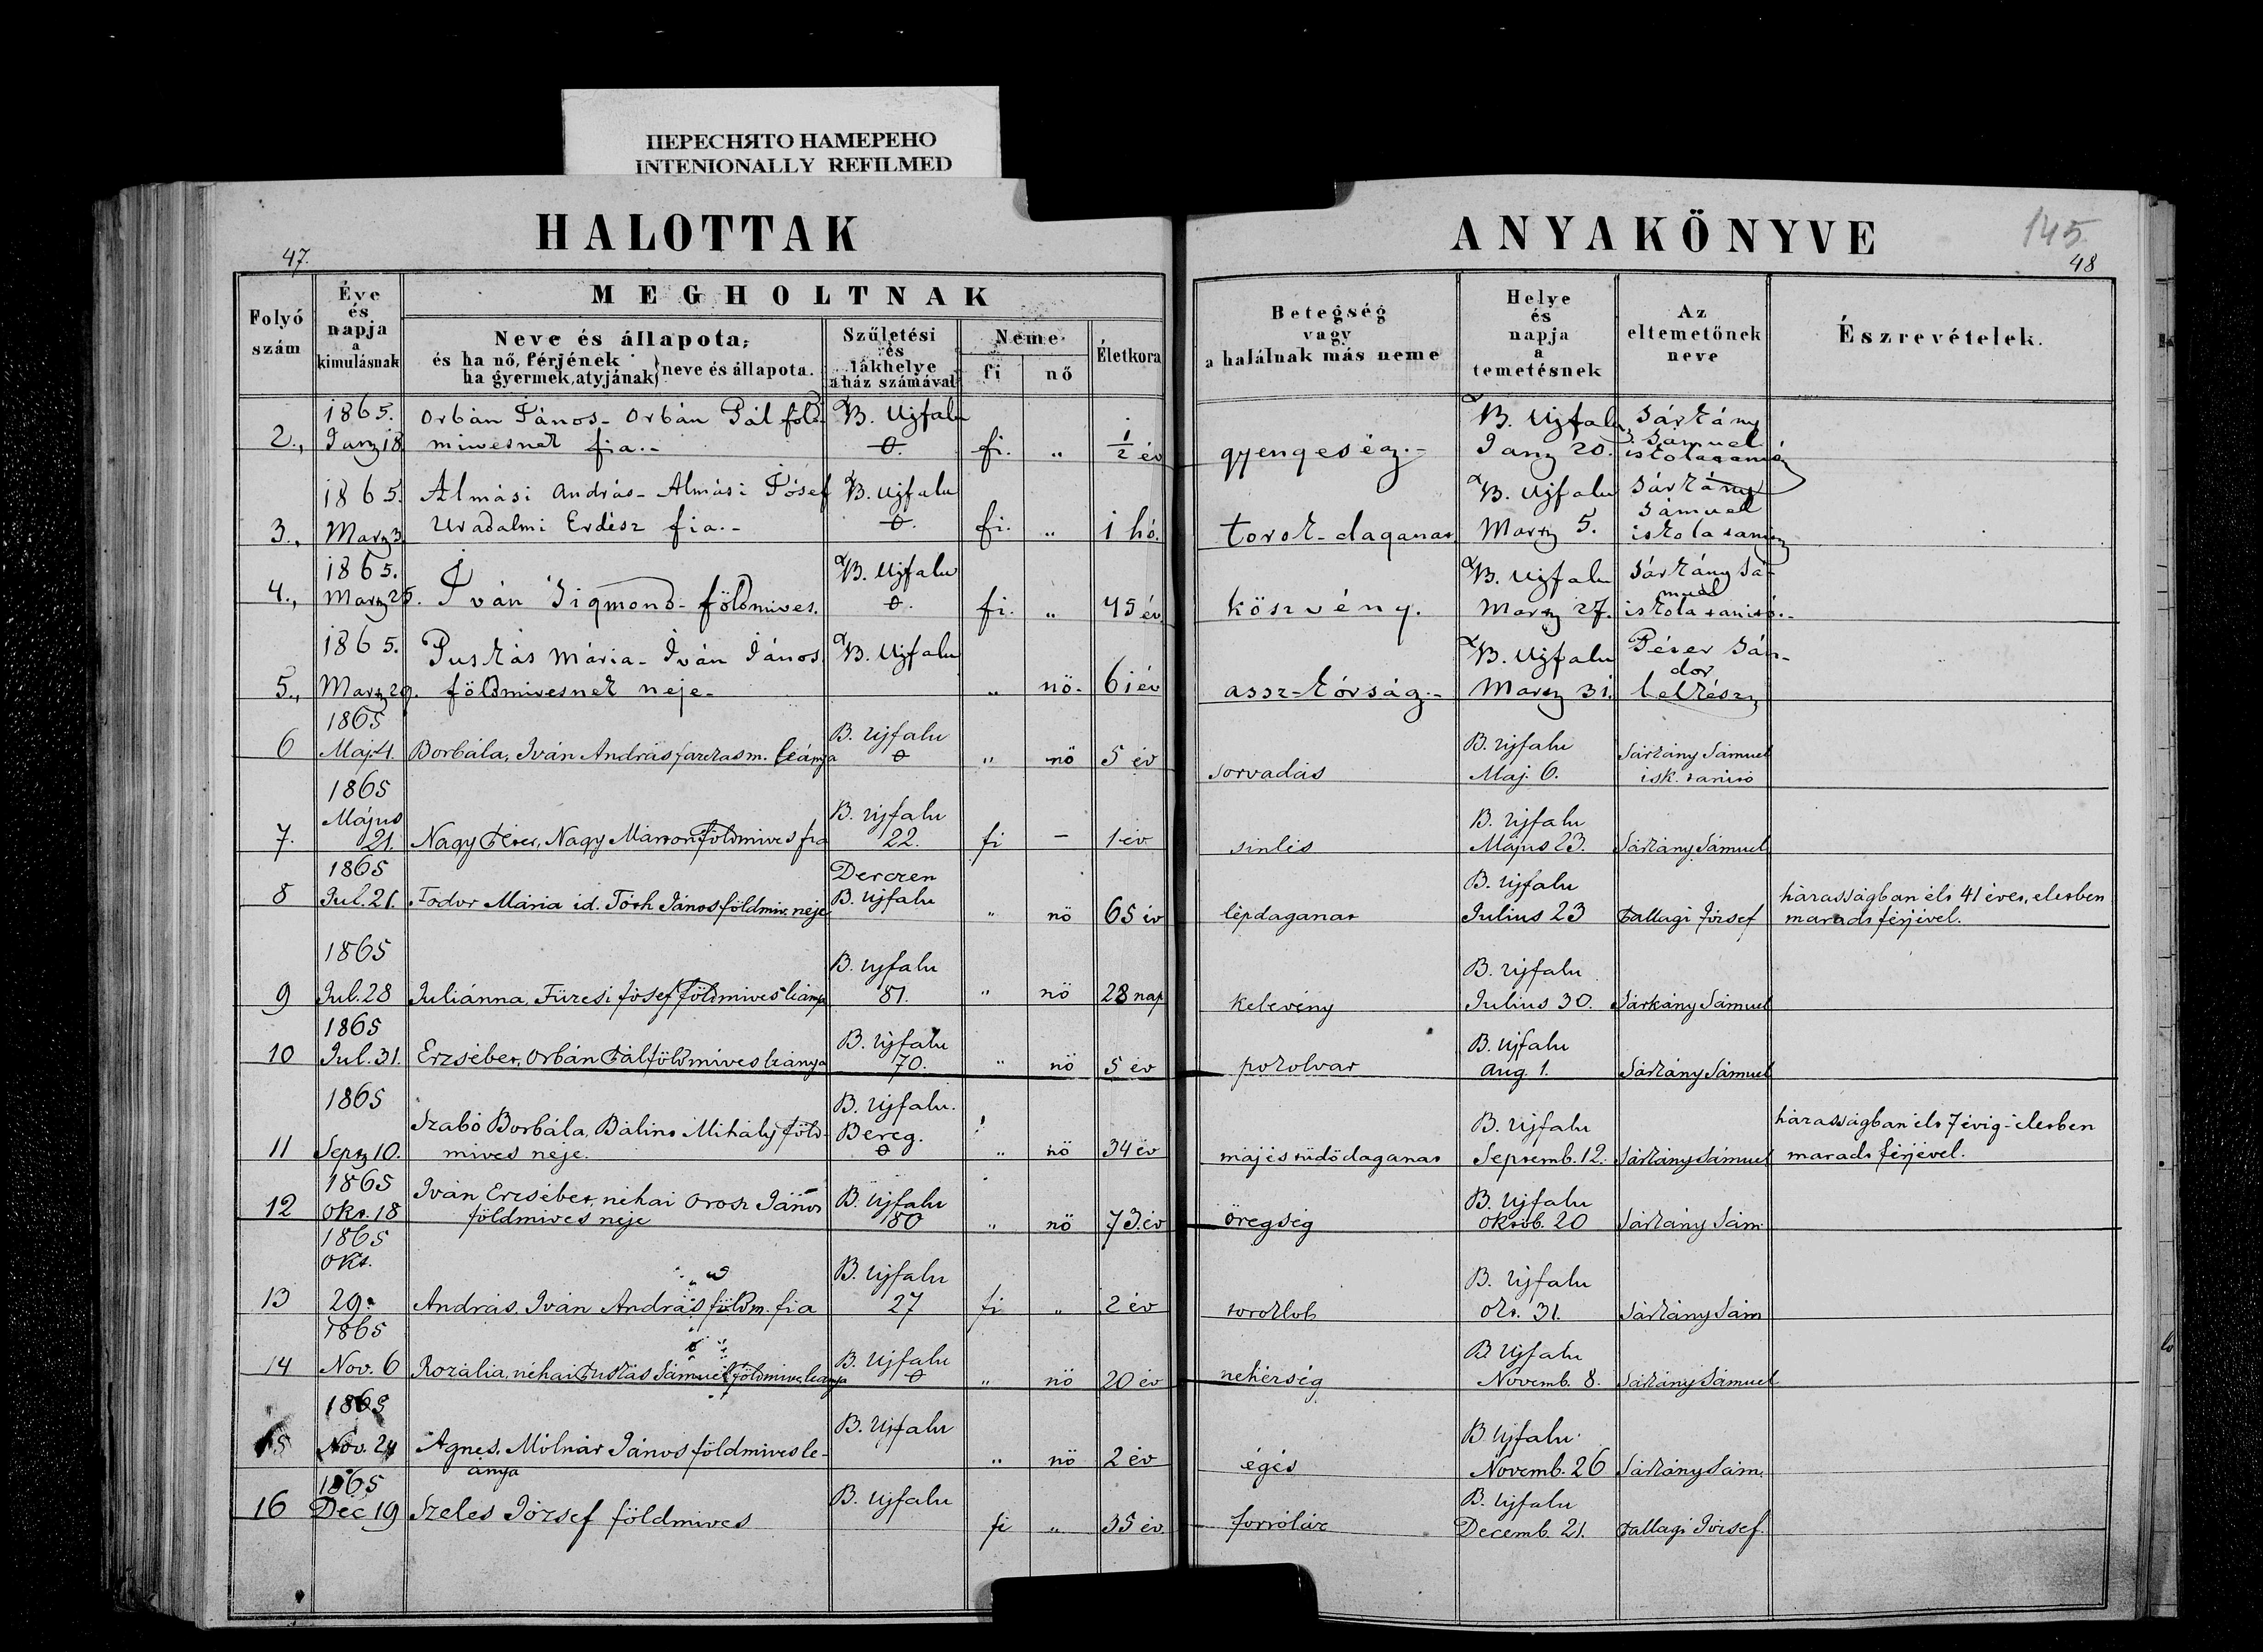 ПЕРЕСНЯТО НАМЕРЕНО
INTENIONALLY REFILMED
HALOTTAK
ANYAKÖNYVE
145
47.
48
Folyó szám
Éve és napja a kimulásnak
MEGHOLTNAK
Neve és állapota,
és ha nő, férjének
ha gyermek, atyjának } neve és állapota.
Születési és lakhelye a ház számával
Neme
fi
nő
Életkora
Betegség vagy a halálnak más neme
Helye és napja a temetésnek
Az eltemetőnek neve
Észrevételek.
2., 1865. Janz 18. Orbán János - Orbán Pál föld-
mivesnek fia.- B. Ujfalu 0. fi. „ 1/2 év gyengeség.- B. Ujfalu Janz 20. Sárkány Sámuel iskolatanitó
3., 1865. Marz 3. Almási András - Almási Jósef
Uradalmi Erdész fia.- B. Ujfalu 0. fi. „ 1 hó. torok-daganat B. Ujfalu Marz 5. Sárkány Sámuel iskola tanitó
4., 1865. Marz 25. Iván Sigmond - földmives. B. Ujfalu 0. fi. „ 45 év. köszvény. B. Ujfalu Marz 27. Sárkány Sámuel iskola tanitó.-
5., 1865. Marz 29. Puskás Mária - Iván János
földmivesnek neje- B. Ujfalu „ nö- 61 év assz-kórság.- B. Ujfalu Marz 31. Péter Sándor lelkész
6 1865 Maj. 4. Borbála, Iván András farkas m. leánya B. Ujfalu 0 „ nö 5 év sorvadás B. Ujfalu Maj. 6. Sárkány Sámuel isk. tanitó
7. 1865 Május 21. Nagy Péter, Nagy Márton földmives fia B. Ujfalu 22. fi – 1 év sinlés B. Ujfalu Május 23. Sárkány Sámuel
8 1865 Jul. 21. Fodor Mária id. Tóth János földmiv. neje Derczen B. Ujfalu „ nö 65 év lépdaganat B. Ujfalu Julius 23 Pallagi József házasságban élt 41 évet, életben
maradt férjével.
9 1865 Jul. 28 Juliánna, Füzesi Jósef földmives leánya B. Ujfalu 81. „ nö 28 nap kelevény B. Ujfalu Julius 30. Sárkány Sámuel
10 1865 Jul. 31. Erzsébet, Orbán Pál földmives leánya B. Ujfalu 70. „ nö 5 év pokolvar B. Ujfalu Aug. 1. Sárkány Sámuel
11 1865 Sept 10. Szabó Borbála, Bálint Mihály föld-
mives neje. B. Ujfalu. Bereg. 0 „ nö 34 év máj és tüdödaganat B. Ujfalu Septemb. 12. Sárkány Sámuel házasságban élt 7 évig - életben
maradt férjével.
12 1865 Okt. 18 Iván Erzsébet, néhai Orosz János
földmives neje B. Ujfalu 80 „ nö 73. év öregség B. Ujfalu Oktob. 20 Sárkány Sám.
13 1865 Okt. 29. András, Iván András földm. fia B. Ujfalu 27 fi „ 2 év toroklob B. Ujfalu Okt. 31. Sárkány Sám
14 1865 Nov. 6 Rozália, néhai Puskás Sámuel földmives leánya B. Ujfalu 0 „ nö 20 év nehézség B. Ujfalu Novemb. 8. Sárkány Sámuel
15 1865 Nov. 24 Ágnes, Mólnár János földmives le-
ánya B. Ujfalu „ nö 2 év égés B. Ujfalu Novemb. 26 Sárkány Sám.
16 1865 Dec 19 Szeles József földmives B. Ujfalu fi „ 35 év forróláz B. Ujfalu Decemb. 21. Pallagi József.